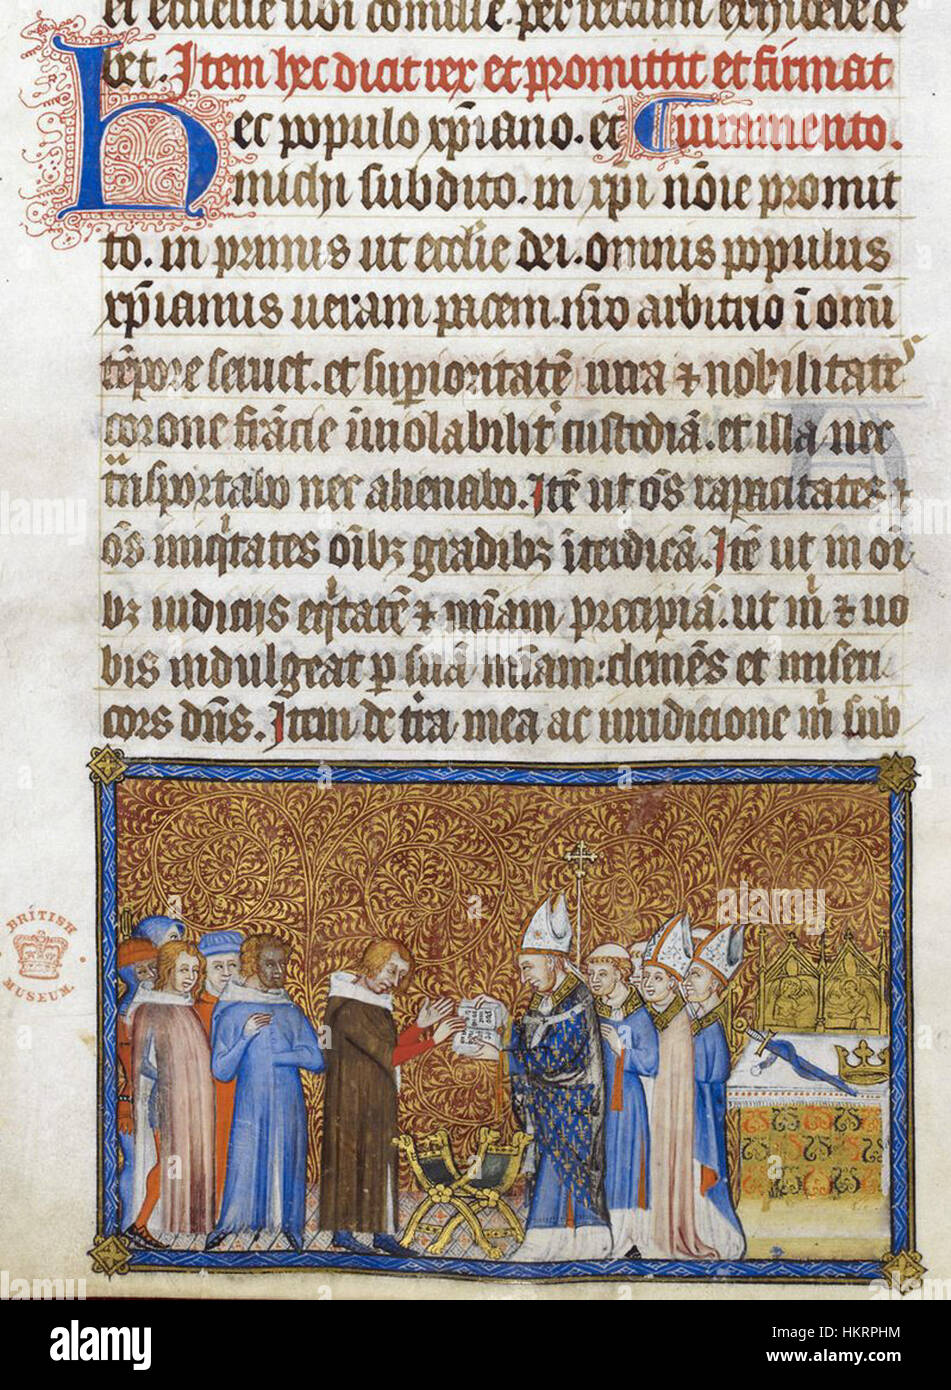 et ecclesie sibi
bet. Item hec dicit rex et promittit et firmat
Hec populo xp̄iano. et Iuramento.
michi subdito. in xp̄i nōie promit
to. in primis ut eccl̄ie dei. omnis populus
xp̄ianus ueram pacem. nr̄o arbitrio ī omī
tēpore seruet. et sup̄ioritatē iura ⁊ nobilitatē
corone frācie īuiolabilit̄ custodiā. et illa nec
tn̄sportabo nec alienabo. Itē ut ōs rapacitates ⁊
ōs iniqͥtates oībꝫ gradibꝫ īterdicā. Itē ut in oī
bꝫ iudiciis eqͥtatē ⁊ mīam precipiā. ut mͥ ⁊ uo
bis indulgeat p suā mīsam: clemēs et miseri
cors dn̄s. Item de tr̄a mea ac iuridicione mͥ sub
BRITISH
MUSEUM.
alamy
Image ID: HKRPHM
www.alamy.com